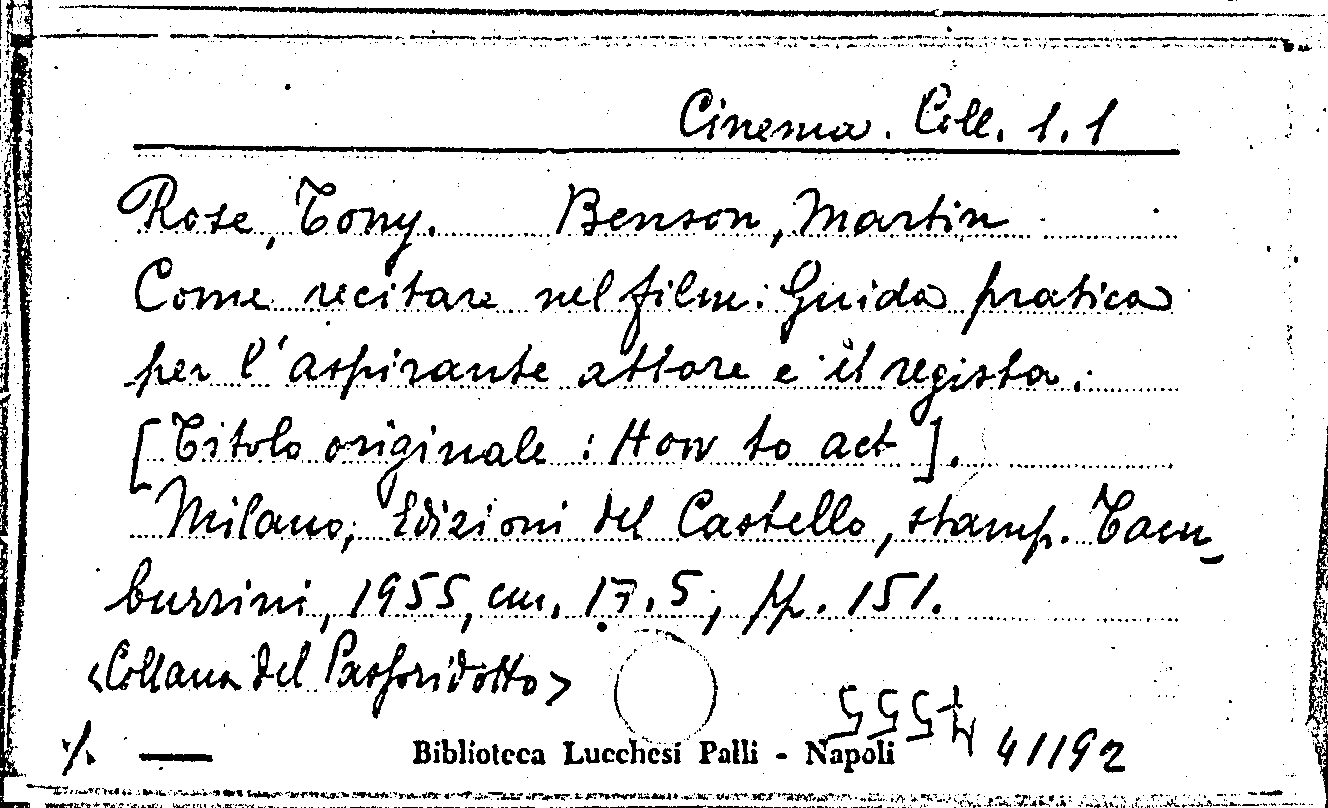 Cinema. Coll. 1.1
Rose, Tony. Benson, Martin
Come recitare nel film: Guida pratica
per l'aspirante attore e il regista.
[Titolo originale : How to act].
Milano, Edizioni del Castello, stamp. Tam-
burrini, 1955, cm. 17.5, pp. 151.
<Collana del Passoridotto>
Biblioteca Lucchesi Palli - Napoli 41192